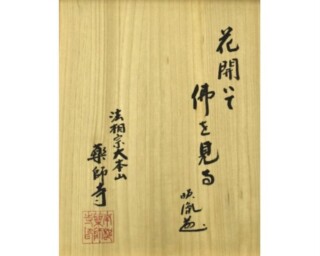 花開いて
佛を見る
法相宗大本山
薬師寺